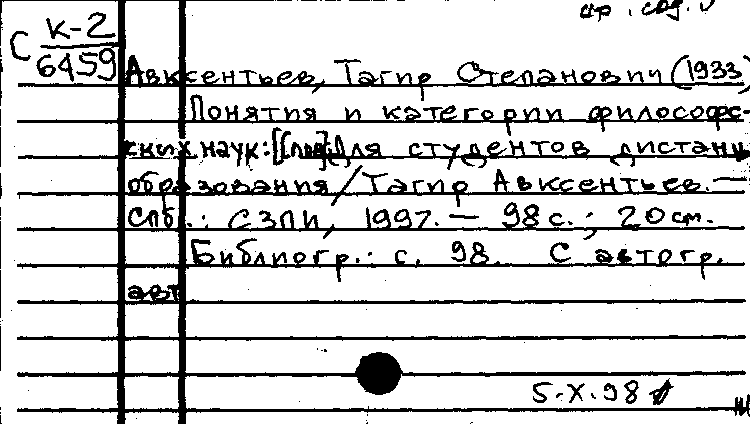 С К-2
6459
Авксентьев, Тагир Степанович (1933
Понятия и категории философс-
ких наук: [[Для студентов дистанц
образования / Тагир Авксентьев. —
Спб.: СЗПИ, 1997. — 98 с.; 20 см.
Библиогр.: с. 98. С автогр.
авт
5.X.98